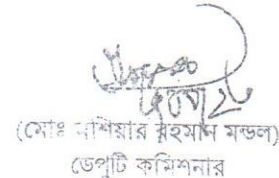 (মোঃ মশিয়ার রহমান মন্ডল)
ডেপুটি কমিশনার